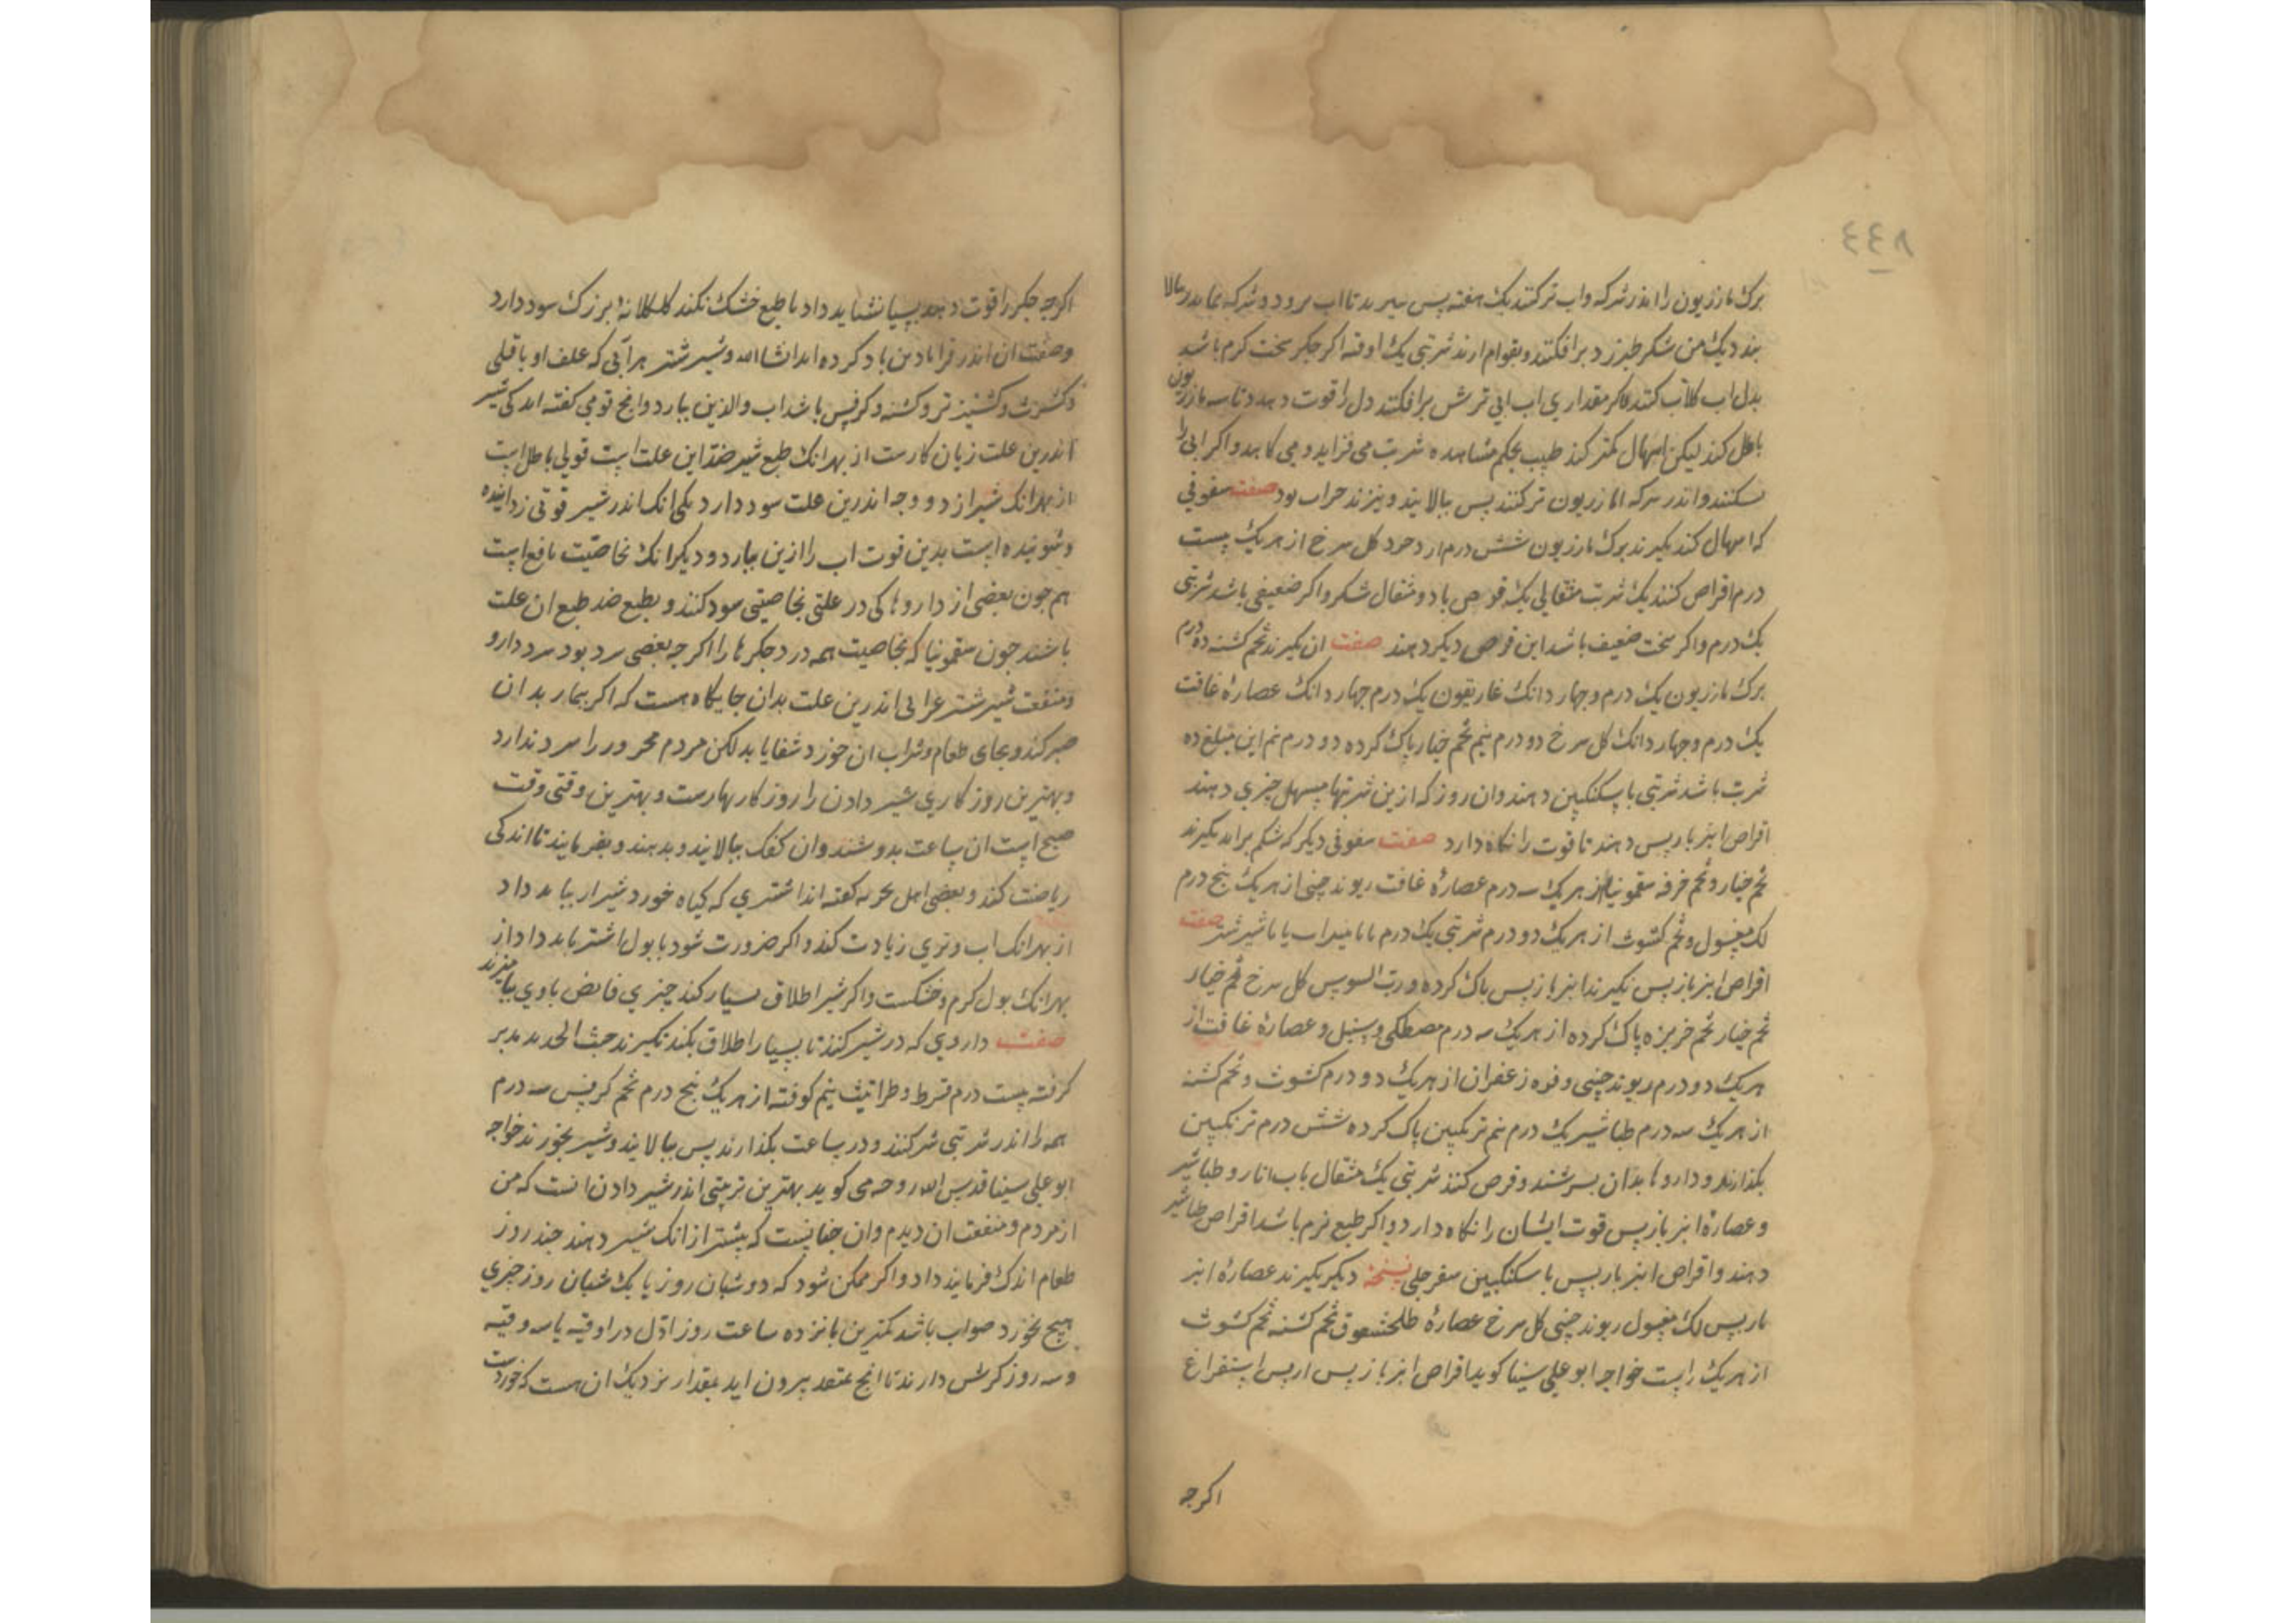 ٨٤٤
برک مازریون را اندر سرکه واب تر کنند یک هفته پس بپزند تا اب برود و سرکه بماند بالا
بند دیک من شکر طبرزد برافکنند و بقوام ارند شربتی یک اوقیه اکر جکر سخت کرم باشد
بدل اب کلاب کنند و اکر مقداری اب ابی ترش برافکنند دل را قوت دهد و تاسه مازریون
باطل کند لیکن اسهال کمتر کند طبیب بحکم مشاهده شربت می فزاید و می کاهد و اکر ابی را
بکنند و اندر سرکه مازریون تر کنند پس بپالایند و بپزند صواب بود صفت سفوفی
که اسهال کند بکیرند برک مازریون شش درم کل سرخ از هر یک بیست
درم اقراص کنند یک شربت مثقالی یک قرص با دو مثقال شکر و اکر ضعیفی باشد شربتی
یک درم و اکر سخت ضعیف باشد این قرص دیکر دهند صفت ان بکیرند تخم کشنه ده درم
برک مازریون یک درم و جهار دانک غاریقون یک درم جهار دانک عصارهٔ غافت
یک درم و جهار دانک کل سرخ دو درم نیم تخم خیار پاک کرده دو درم نیم این مبلغ ده
شربت باشد شربتی با سکنکبین دهند وان روز که ازین شربتها مسهل جیزی دهند
اقراص انبرباریس دهند تا قوت را نکاه دارد صفت سفوفی دیکر که شکم براند بکیرند
تخم خیار و تخم خرفه سقمونیا از هر یک سه درم عصارهٔ غافت ریوند جینی از هر یک پنج درم
لک مغسول و تخم کشوث از هر یک دو درم شربتی یک درم یا با شیر شتر صفت
اقراص انبرباریس بکیرند انبرباریس پاک کرده و رب السوس کل سرخ تخم خیار
تخم خیار تخم خربزه پاک کرده از هر یک سه درم مصطکی و سنبل و عصارهٔ غافت از
هر یک دو درم ریوند جینی و فوه زعفران از هر یک دو درم کشوث و تخم کشنه
از هر یک سه درم طباشیر یک درم نیم ترنکبین پاک کرده شش درم ترنکبین
بکذارند و داروها بدان بسرشند و قرص کنند شربتی یک مثقال باب انار و طباشیر
و عصارهٔ انبرباریس قوت ایشان را نکاه دارد و اکر طبع نرم باشد اقراص طباشیر
دهند و اقراص انبرباریس با سکنکبین سفرجلی نسخه دیکر بکیرند عصارهٔ انبر
باریس لک مغسول ریوند جینی کل سرخ عصارهٔ طلخشقوق تخم کشنه تخم کشوث
از هر یک راست خواجه ابو علی سینا کوید اقراص انبرباریس از پس استفراغ
اکرجه
اکرجه جکر را قوت دهد بسیار نشاید داد تا طبع خشک نکند کلکلانهٔ بزرک سود دارد
وصفت ان اندر قرابادین یاد کرده اید انشا الله وشیر شتر هر آیی که علف او باقلی
وکشوث وکشنیز تر وکشنه وکرفس باشد اب والذین بیارد وانج قومی کفته اند کی شیر
اندرین علت زیان کارست از بهر انک طبع شیر ضد این علت است قولی باطل است
از بهر انک شیر از دو وجه اندرین علت سود دارد یکی انک اندر شیر قوتی زداینده
وشوینده است بدین قوت اب را ازین بیارد ودیکر انک بخاصیت نافع است
هم جون بعضی از داروها کی در علتی بخاصیتی سود کنند و بطبع ضد طبع ان علت
باشند جون سقمونیا که بخاصیت همه درد جکرها را اکرجه بعضی سرد بود سود دارد
ومنفعت شیر شتر عرابی اندرین علت بدان جایکاه هست که اکر بیمار بدان
صبر کند وبجای طعام وشراب ان خورد شفا یابد لکن مردم محرور را سود ندارد
وبهترین روزکاری شیر دادن را روزکار بهارست وبهترین وقتی وقت
صبح است ان ساعت بدوشند وان کفک بپالایند وبدهند وبفرمایند تا اندکی
ریاضت کند وبعضی اهل تجربه کفته اند اشتری که کیاه خورد شیر او نباید داد
از بهر انک اب وتری زیادت کند واکر ضرورت شود با بول اشتر باید داد از
بهر انک بول کرم وخشکست واکر شیر اطلاق بسیار کند جیزی قابض باوی بیامیزند
صفت داروی که در شیر کنند تا بسیار اطلاق نکند بکیرند خبث الحدید مدبر
کرفته بیست درم قرط وطراثیث نیم کوفته از هر یک پنج درم تخم کرفس سه درم
همه را اندر شربتی شیر کنند ودر ساعت بکذارند پس بپالایند وشیر بخورند خواجه
ابو علی سینا قدس الله روحه می کوید بهترین ترتیبی اندر شیر دادن انست که من
ازمودم ومنفعت ان دیدم وان جنانست که بیشتر از انک شیر دهند جند روز
طعام اندک فرمایند داد واکر ممکن شود که دو شبان روز یا یک شبان روز جیزی
هیج نخورد صواب باشد کمترین پانزده ساعت روز اول دو اوقیه یا سه وقیه
وسه روز کوشش دارند تا انج بمقعد بیرون اید بمقدار نزدیک ان هست که خوردست